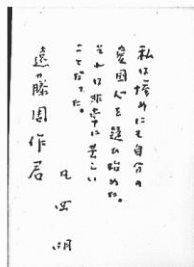 私は惨めにも自分の
愛国心を疑ひ始めた。
それは非常に苦しい
ことだった。
丸岡明
遠藤周作君